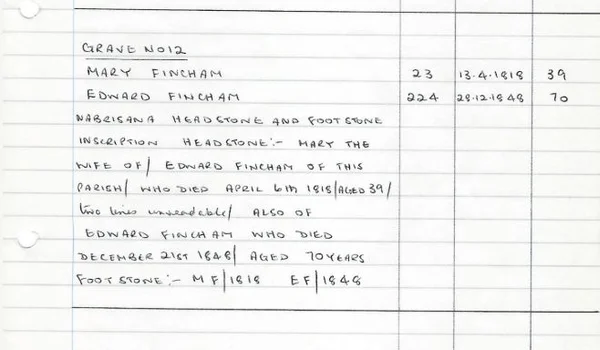 GRAVE NO 12
MARY FINCHAM 23 13.4.1818 39
EDWARD FINCHAM 224 28.12.1848 70
NABRISANA HEADSTONE AND FOOTSTONE
INSCRIPTION HEADSTONE:- MARY THE
WIFE OF/ EDWARD FINCHAM OF THIS
PARISH/ WHO DIED APRIL 6TH 1818/AGED 39/
two lines unreadable/ ALSO OF
EDWARD FINCHAM WHO DIED
DECEMBER 21ST 1848/ AGED 70 YEARS
FOOTSTONE:- M F/1818 E F/1848